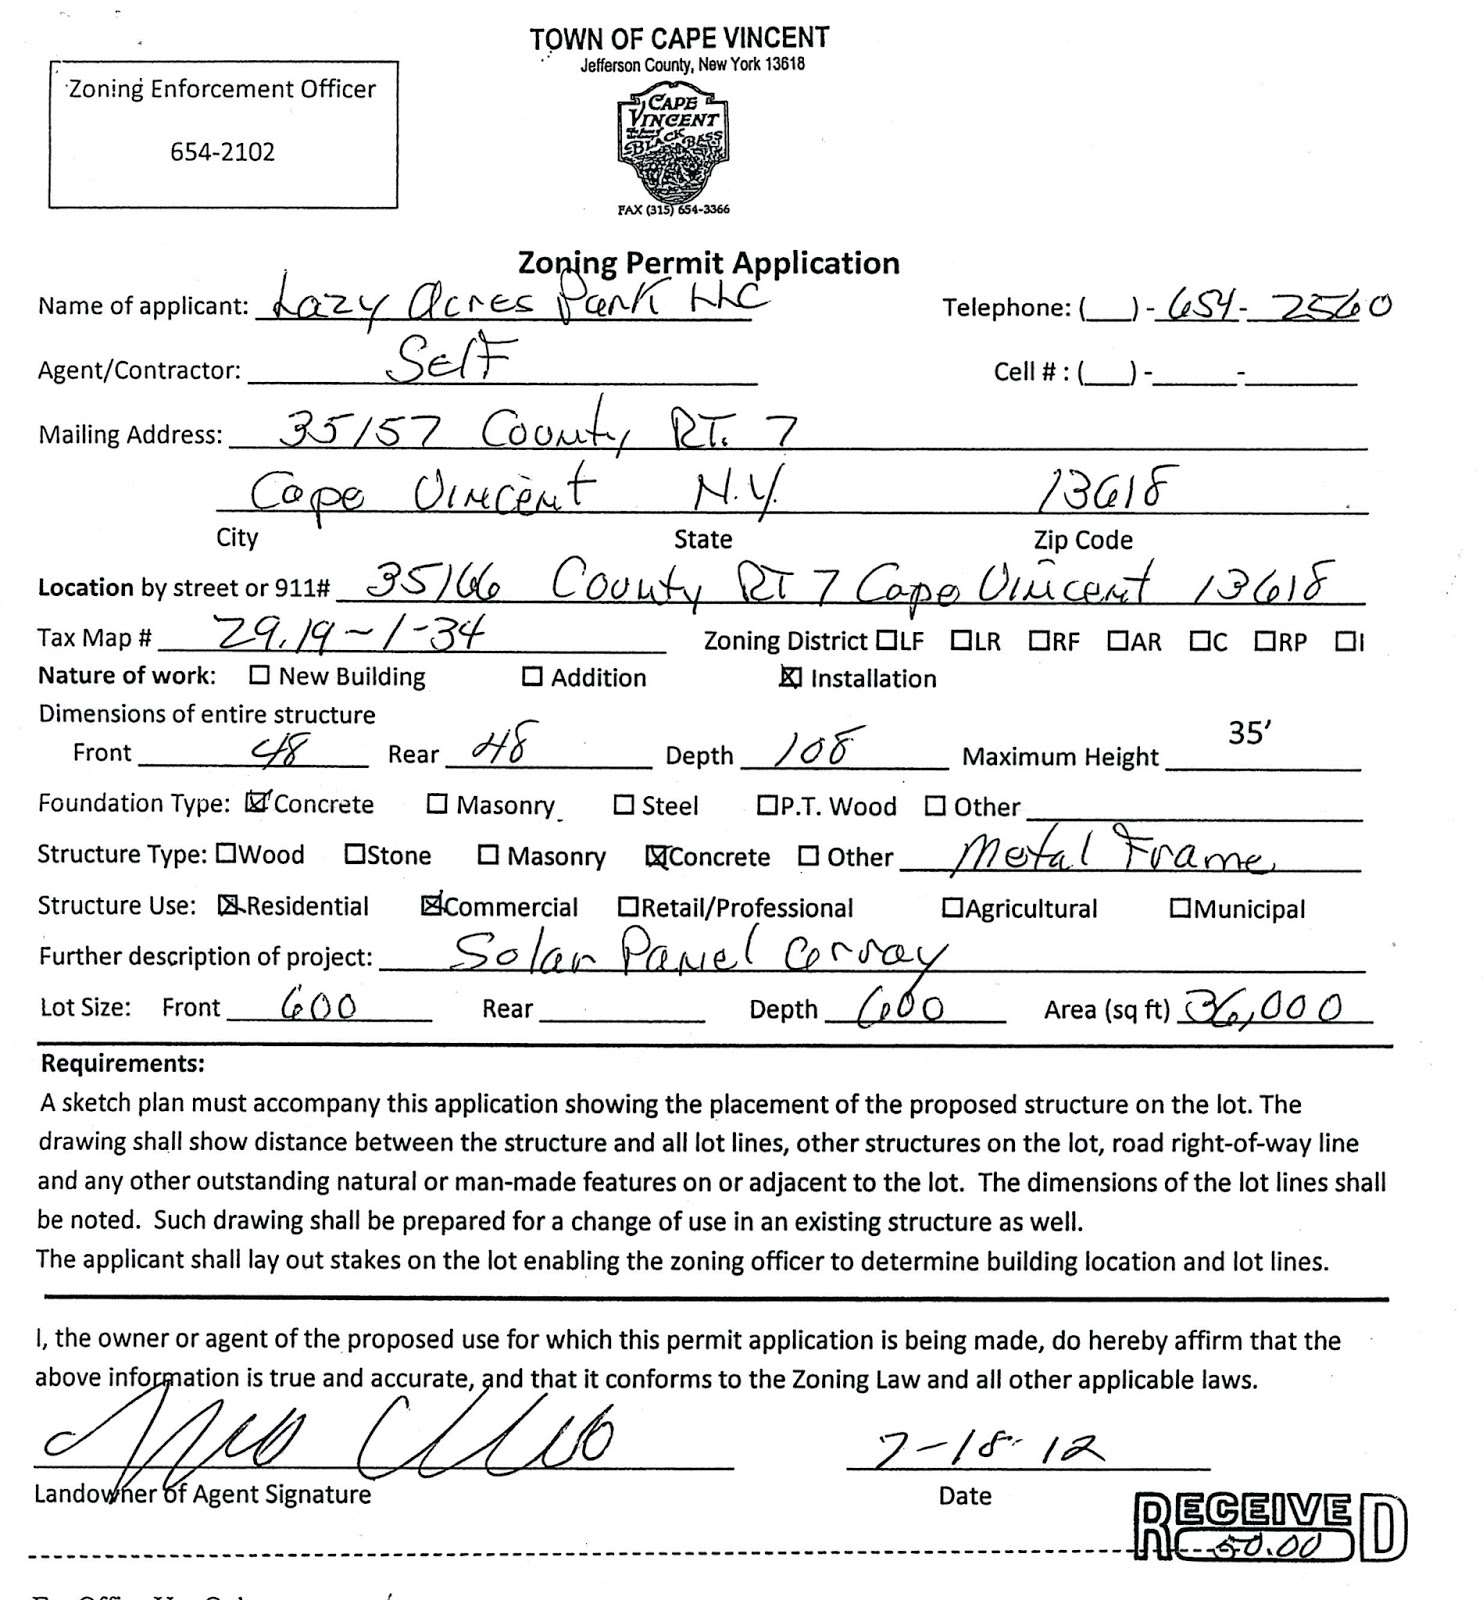 TOWN OF CAPE VINCENT
Jefferson County, New York 13618
Zoning Enforcement Officer
654-2102
CAPE
VINCENT
BLACK BASS
FAX (315) 654-3366
Zoning Permit Application
Name of applicant: Lazy Acres Park LLC Telephone: (__) - 654 - 2560
Agent/Contractor: Self Cell # : (__) -______-______
Mailing Address: 35157 County RT. 7
Cape Vincent N.Y. 13618
City State Zip Code
Location by street or 911# 35166 County RT 7 Cape Vincent 13618
Tax Map # 29.19-1-34 Zoning District ☐LF ☐LR ☐RF ☐AR ☐C ☐RP ☐I
Nature of work: ☐ New Building ☐ Addition ☒ Installation
Dimensions of entire structure
Front 48 Rear 48 Depth 108 Maximum Height 35'
Foundation Type: ☒ Concrete ☐ Masonry ☐ Steel ☐P.T. Wood ☐ Other
Structure Type: ☐Wood ☐Stone ☐ Masonry ☒Concrete ☐ Other Metal Frame
Structure Use: ☒Residential ☒Commercial ☐Retail/Professional ☐Agricultural ☐Municipal
Further description of project: Solar Panel array
Lot Size: Front 600 Rear Depth 600 Area (sq ft) 36,000
Requirements:
A sketch plan must accompany this application showing the placement of the proposed structure on the lot. The
drawing shall show distance between the structure and all lot lines, other structures on the lot, road right-of-way line
and any other outstanding natural or man-made features on or adjacent to the lot. The dimensions of the lot lines shall
be noted. Such drawing shall be prepared for a change of use in an existing structure as well.
The applicant shall lay out stakes on the lot enabling the zoning officer to determine building location and lot lines.
I, the owner or agent of the proposed use for which this permit application is being made, do hereby affirm that the
above information is true and accurate, and that it conforms to the Zoning Law and all other applicable laws.
7-18-12
Landowner of Agent Signature Date
RECEIVED
50.00